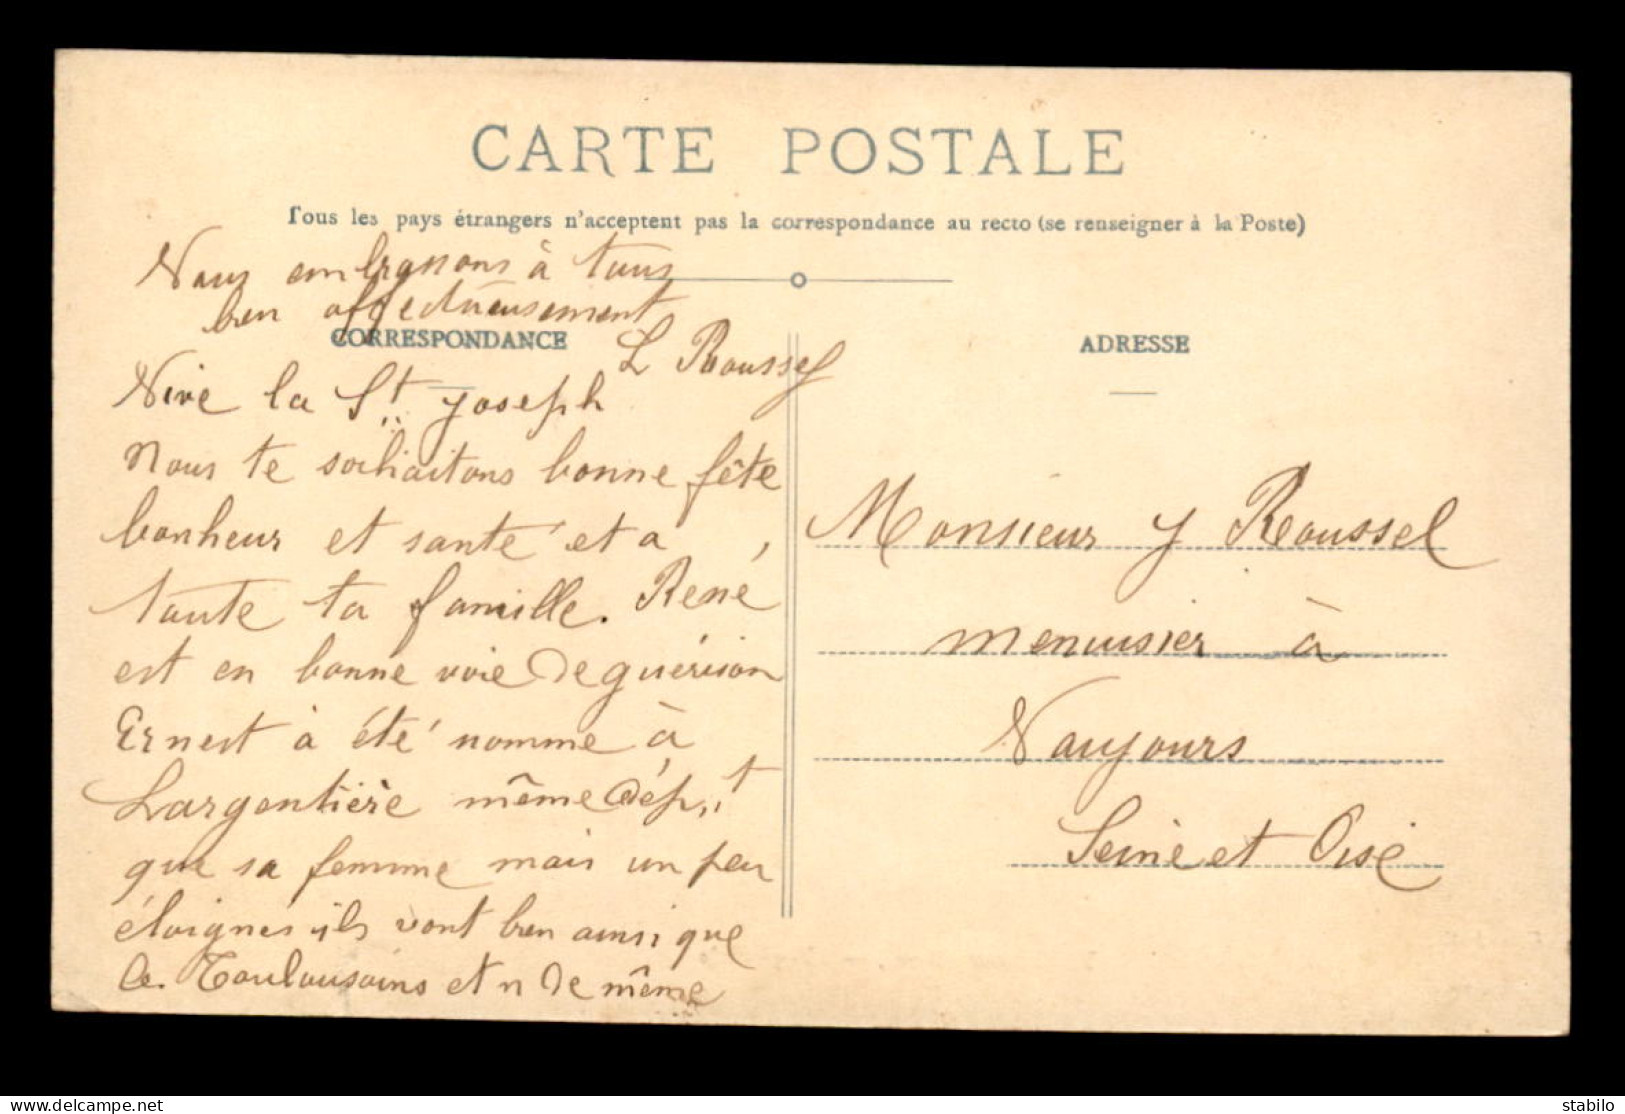 CARTE POSTALE
Tous les pays étrangers n'acceptent pas la correspondance au recto (se renseigner à la Poste)
CORRESPONDANCE
Vive la St Joseph
Nous te souhaitons bonne fête
bonheur et santé et a
toute ta famille. René
est en bonne voie de guérison
Ernest à été nomme à
Largentière même dép.t
que sa femme mais un peu
éloignés ils vont bien ainsi que
Toulousains et n de même
Nous embrassons à tous
bien affectueusement
L Roussel
ADRESSE
Monsieur J Roussel
menuisier à
Vaujours
Seine et Oise
delcampe.net
stabilo